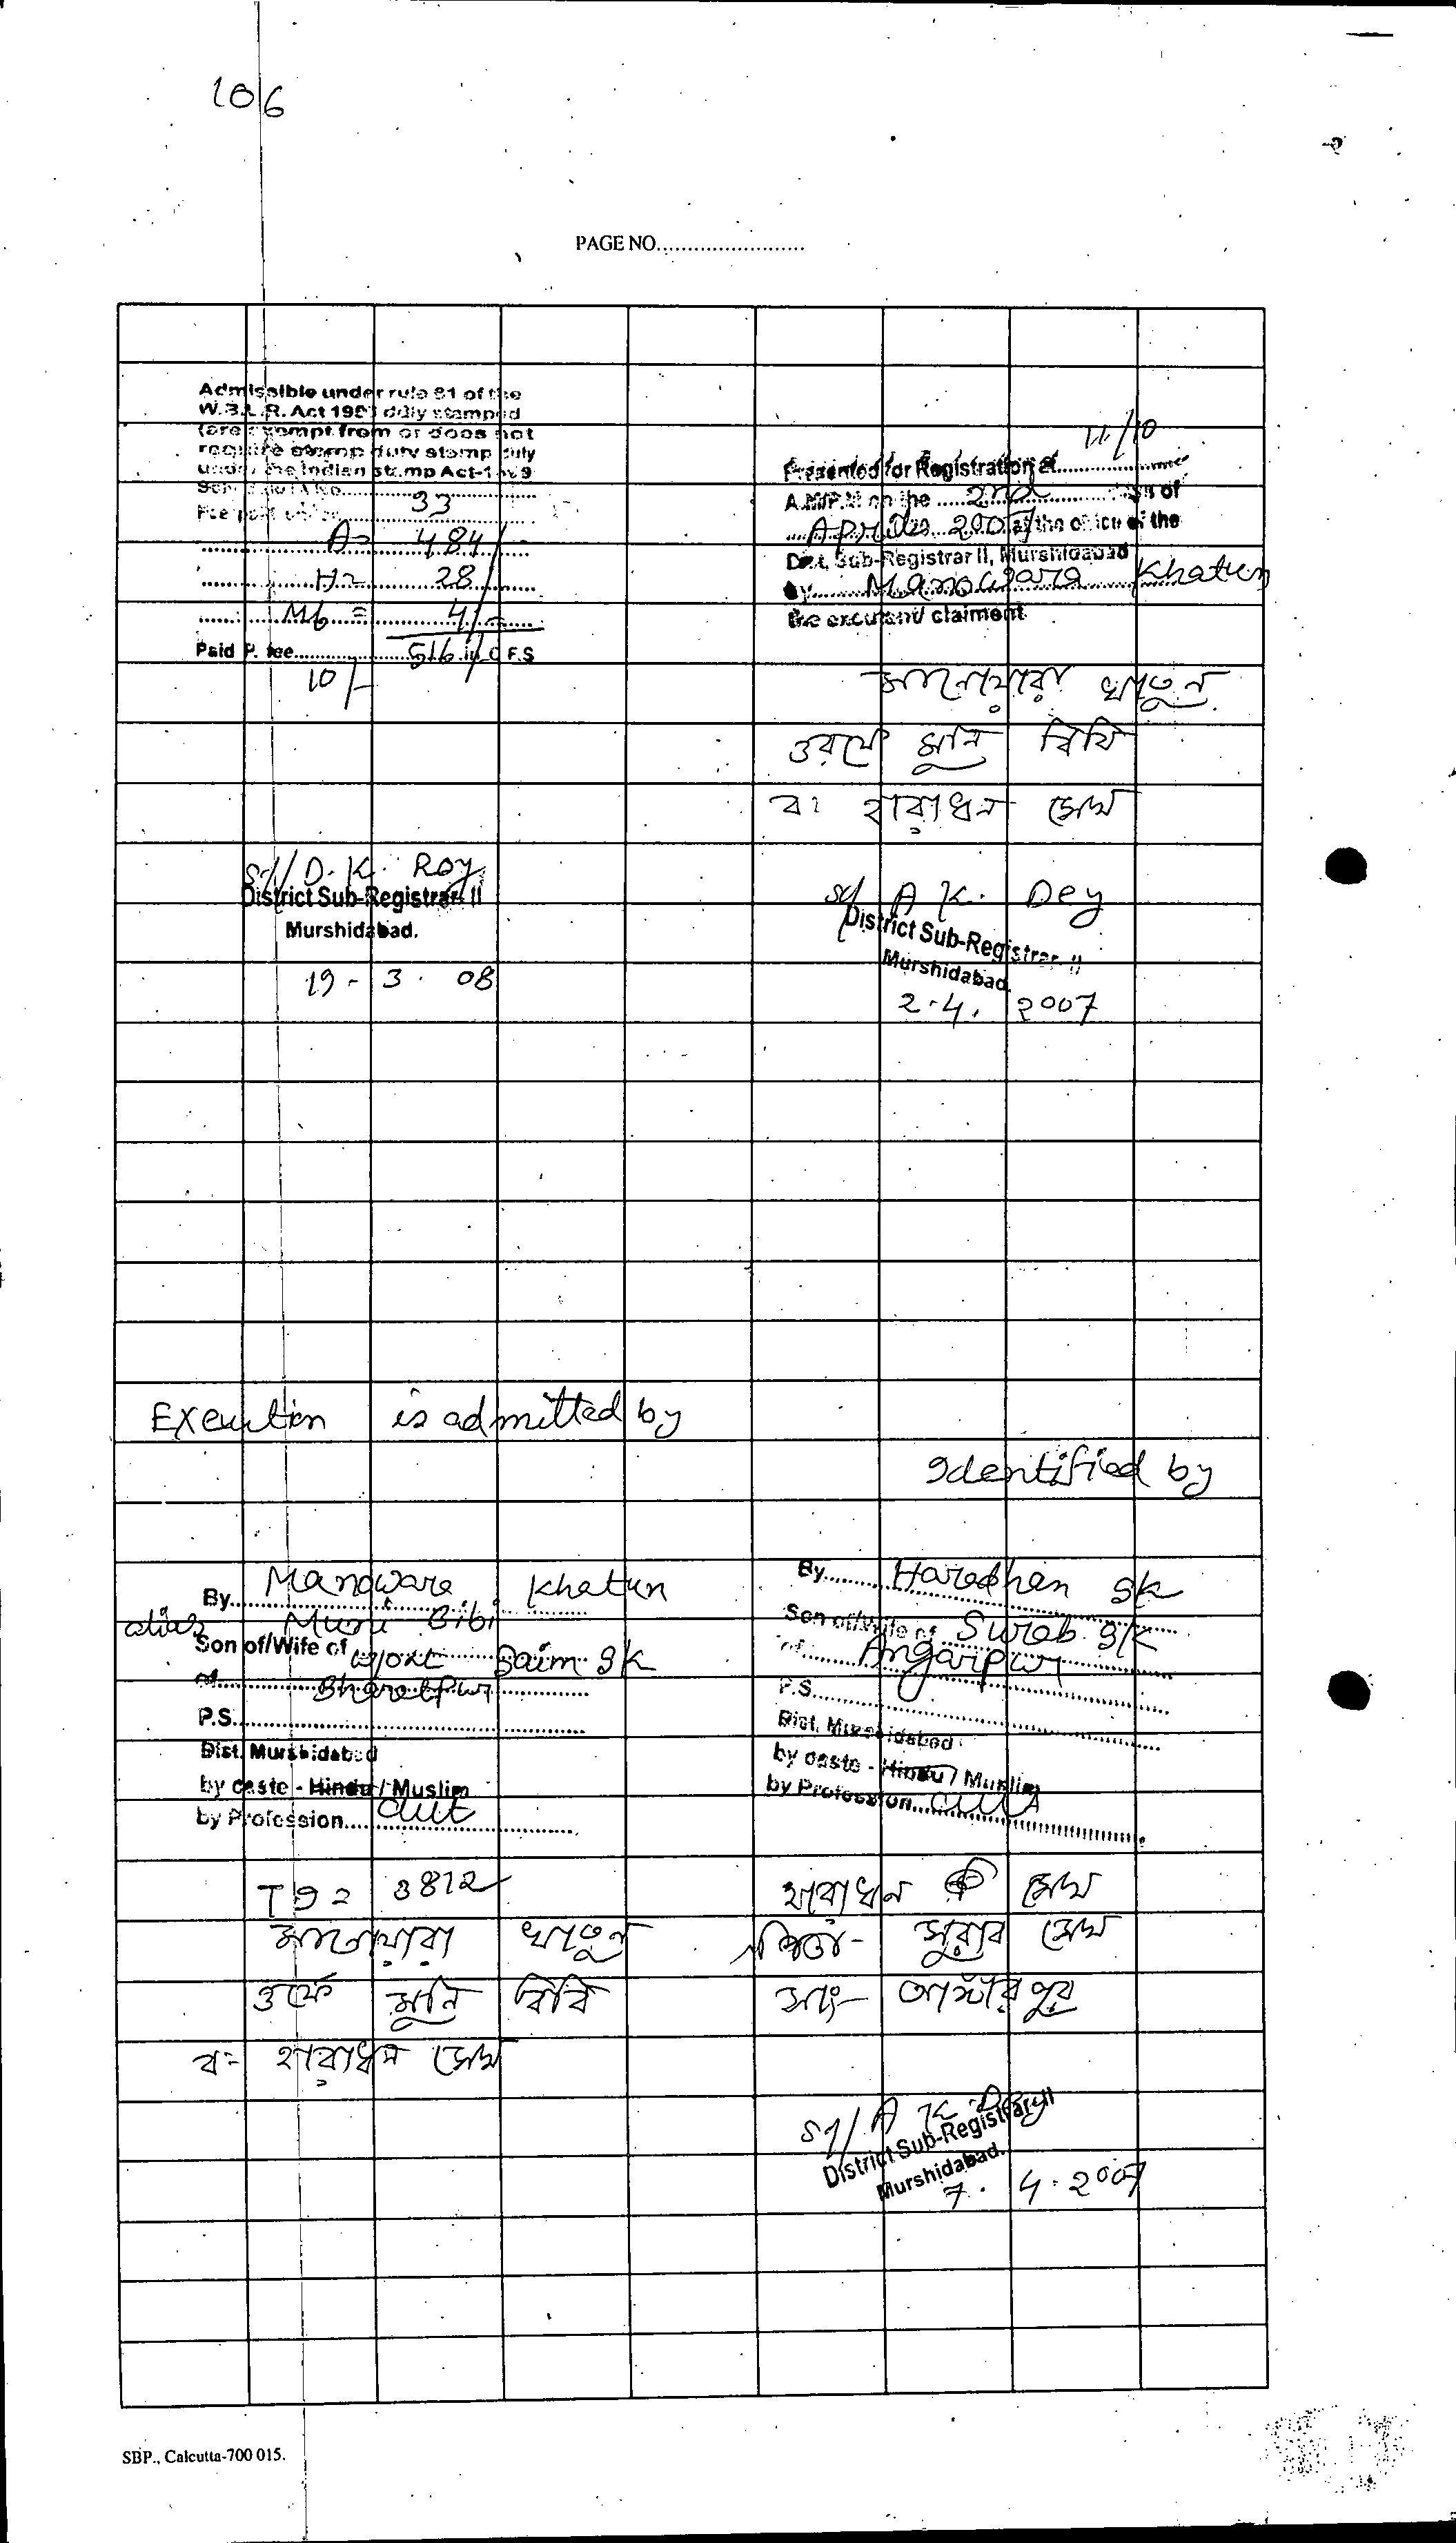 106
PAGE NO........................
Admissible under rule 21 of the
W.B.L.R. Act 1993 duly stamped
(are exempt from or does not
require stamp duty stamp duty
under the Indian stamp Act-1899
33
Fee paid under
A= 484/
H= 28/
Mb = 4/-
Paid P. fee 516/ in C F.S
10/-
Sd/ D. K. Roy
District Sub-Registrar II
Murshidabad.
19 - 3 . 08
11/10
Presented for Registration at
A.M/P.M on the 2nd day of
April 2007 at the office of the
Dist. Sub-Registrar II, Murshidabad
by Manowara Khatun
the executant/ claiment
মানোয়ারা খাতুন
ওরফে মুনি বিবি
বঃ হারাধন সেখ
Sd/ A K. Dey
District Sub-Registrar II
Murshidabad.
2-4. 2007
Execution is admitted by
Identified by
By Manowara Khatun
alias Muni Bibi
Son of/Wife of Saim Sk
of Bharatpur
P.S.
Dist. Murshidabad
by caste - Hindu / Muslim
by Profession
By Haradhan Sk
Son of/Wife of Surab Sk
of Angarpur
P.S.
Dist. Murshidabad
by caste - Hindu / Muslim
by Profession
3872
মানোয়ারা খাতুন
ওর্ফে মুনি বিবি
বঃ হারাধন সেখ
হারাধন সেখ
পিতা- সুরাব সেখ
সাং- আঙ্গারপুর
Sd/ A K Dey
District Sub-Registrar II
Murshidabad.
7. 4. 2007
SBP., Calcutta-700 015.